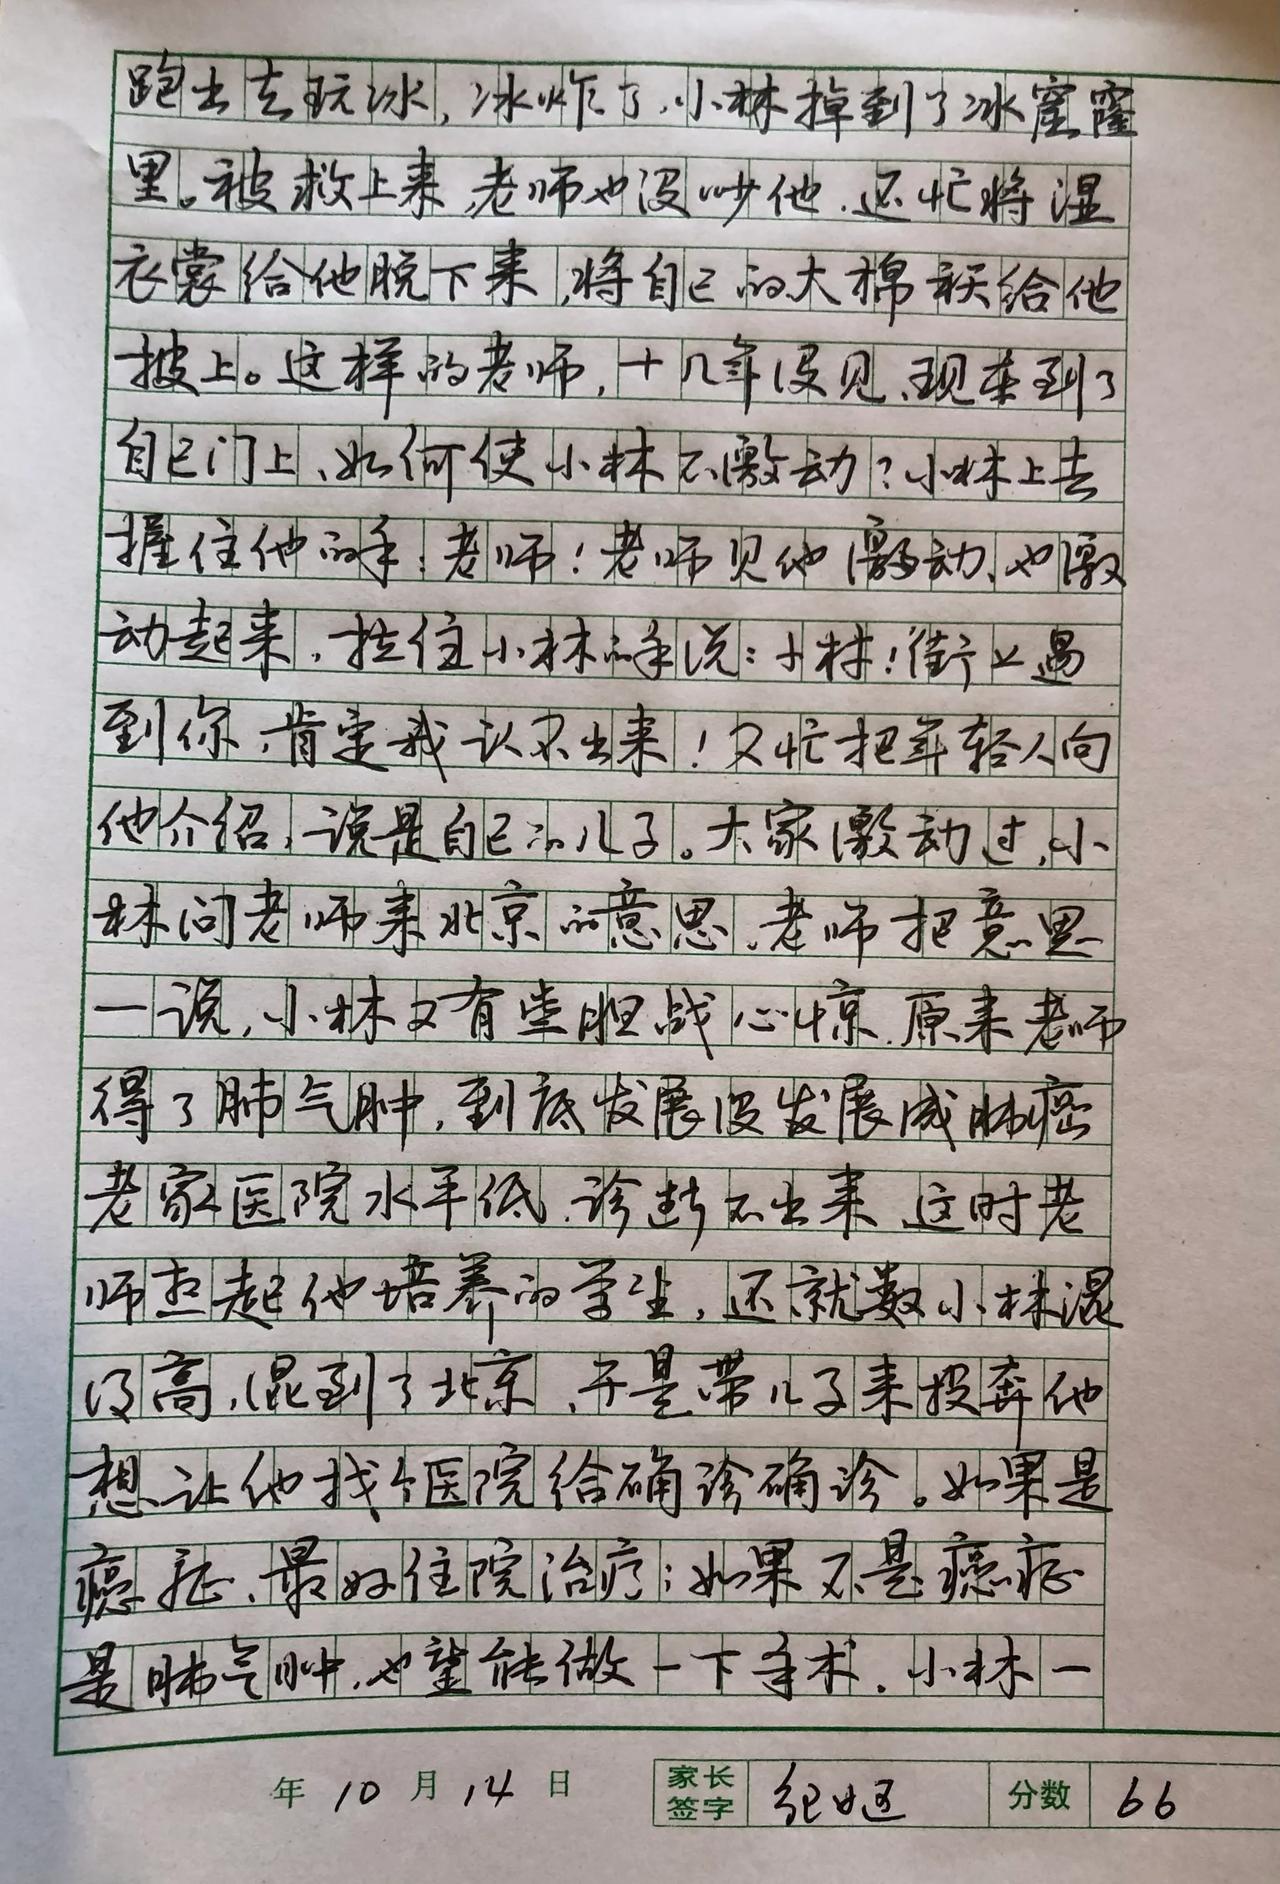 跑出去玩冰,冰炸了,小林掉到了冰窟窿
里。被救上来,老师也没吵他,还忙将湿
衣裳给他脱下来,将自己的大棉袄给他
披上。这样的老师,十几年没见,现在到了
自己门上,如何使小林不激动?小林上去
握住他的手:老师!老师见他激动,也激
动起来,拉住小林的手说:小林!街上遇
到你,肯定我认不出来!又忙把年轻人向
他介绍,说是自己的儿子。大家激动过,小
林问老师来北京的意思,老师把意思
一说,小林又有些胆战心惊,原来老师
得了肺气肿,到底发展没发展成肺癌
老家医院水平低,诊断不出来 这时老
师想起他培养的学生,还就数小林混
得高,混到了北京,于是带儿子来投奔他
想让他找个医院给确诊确诊。如果是
癌症,最好住院治疗;如果不是癌症
是肺气肿,也望能做一下手术,小林一
年 10 月 14 日 家长签字 纪妪 分数 66